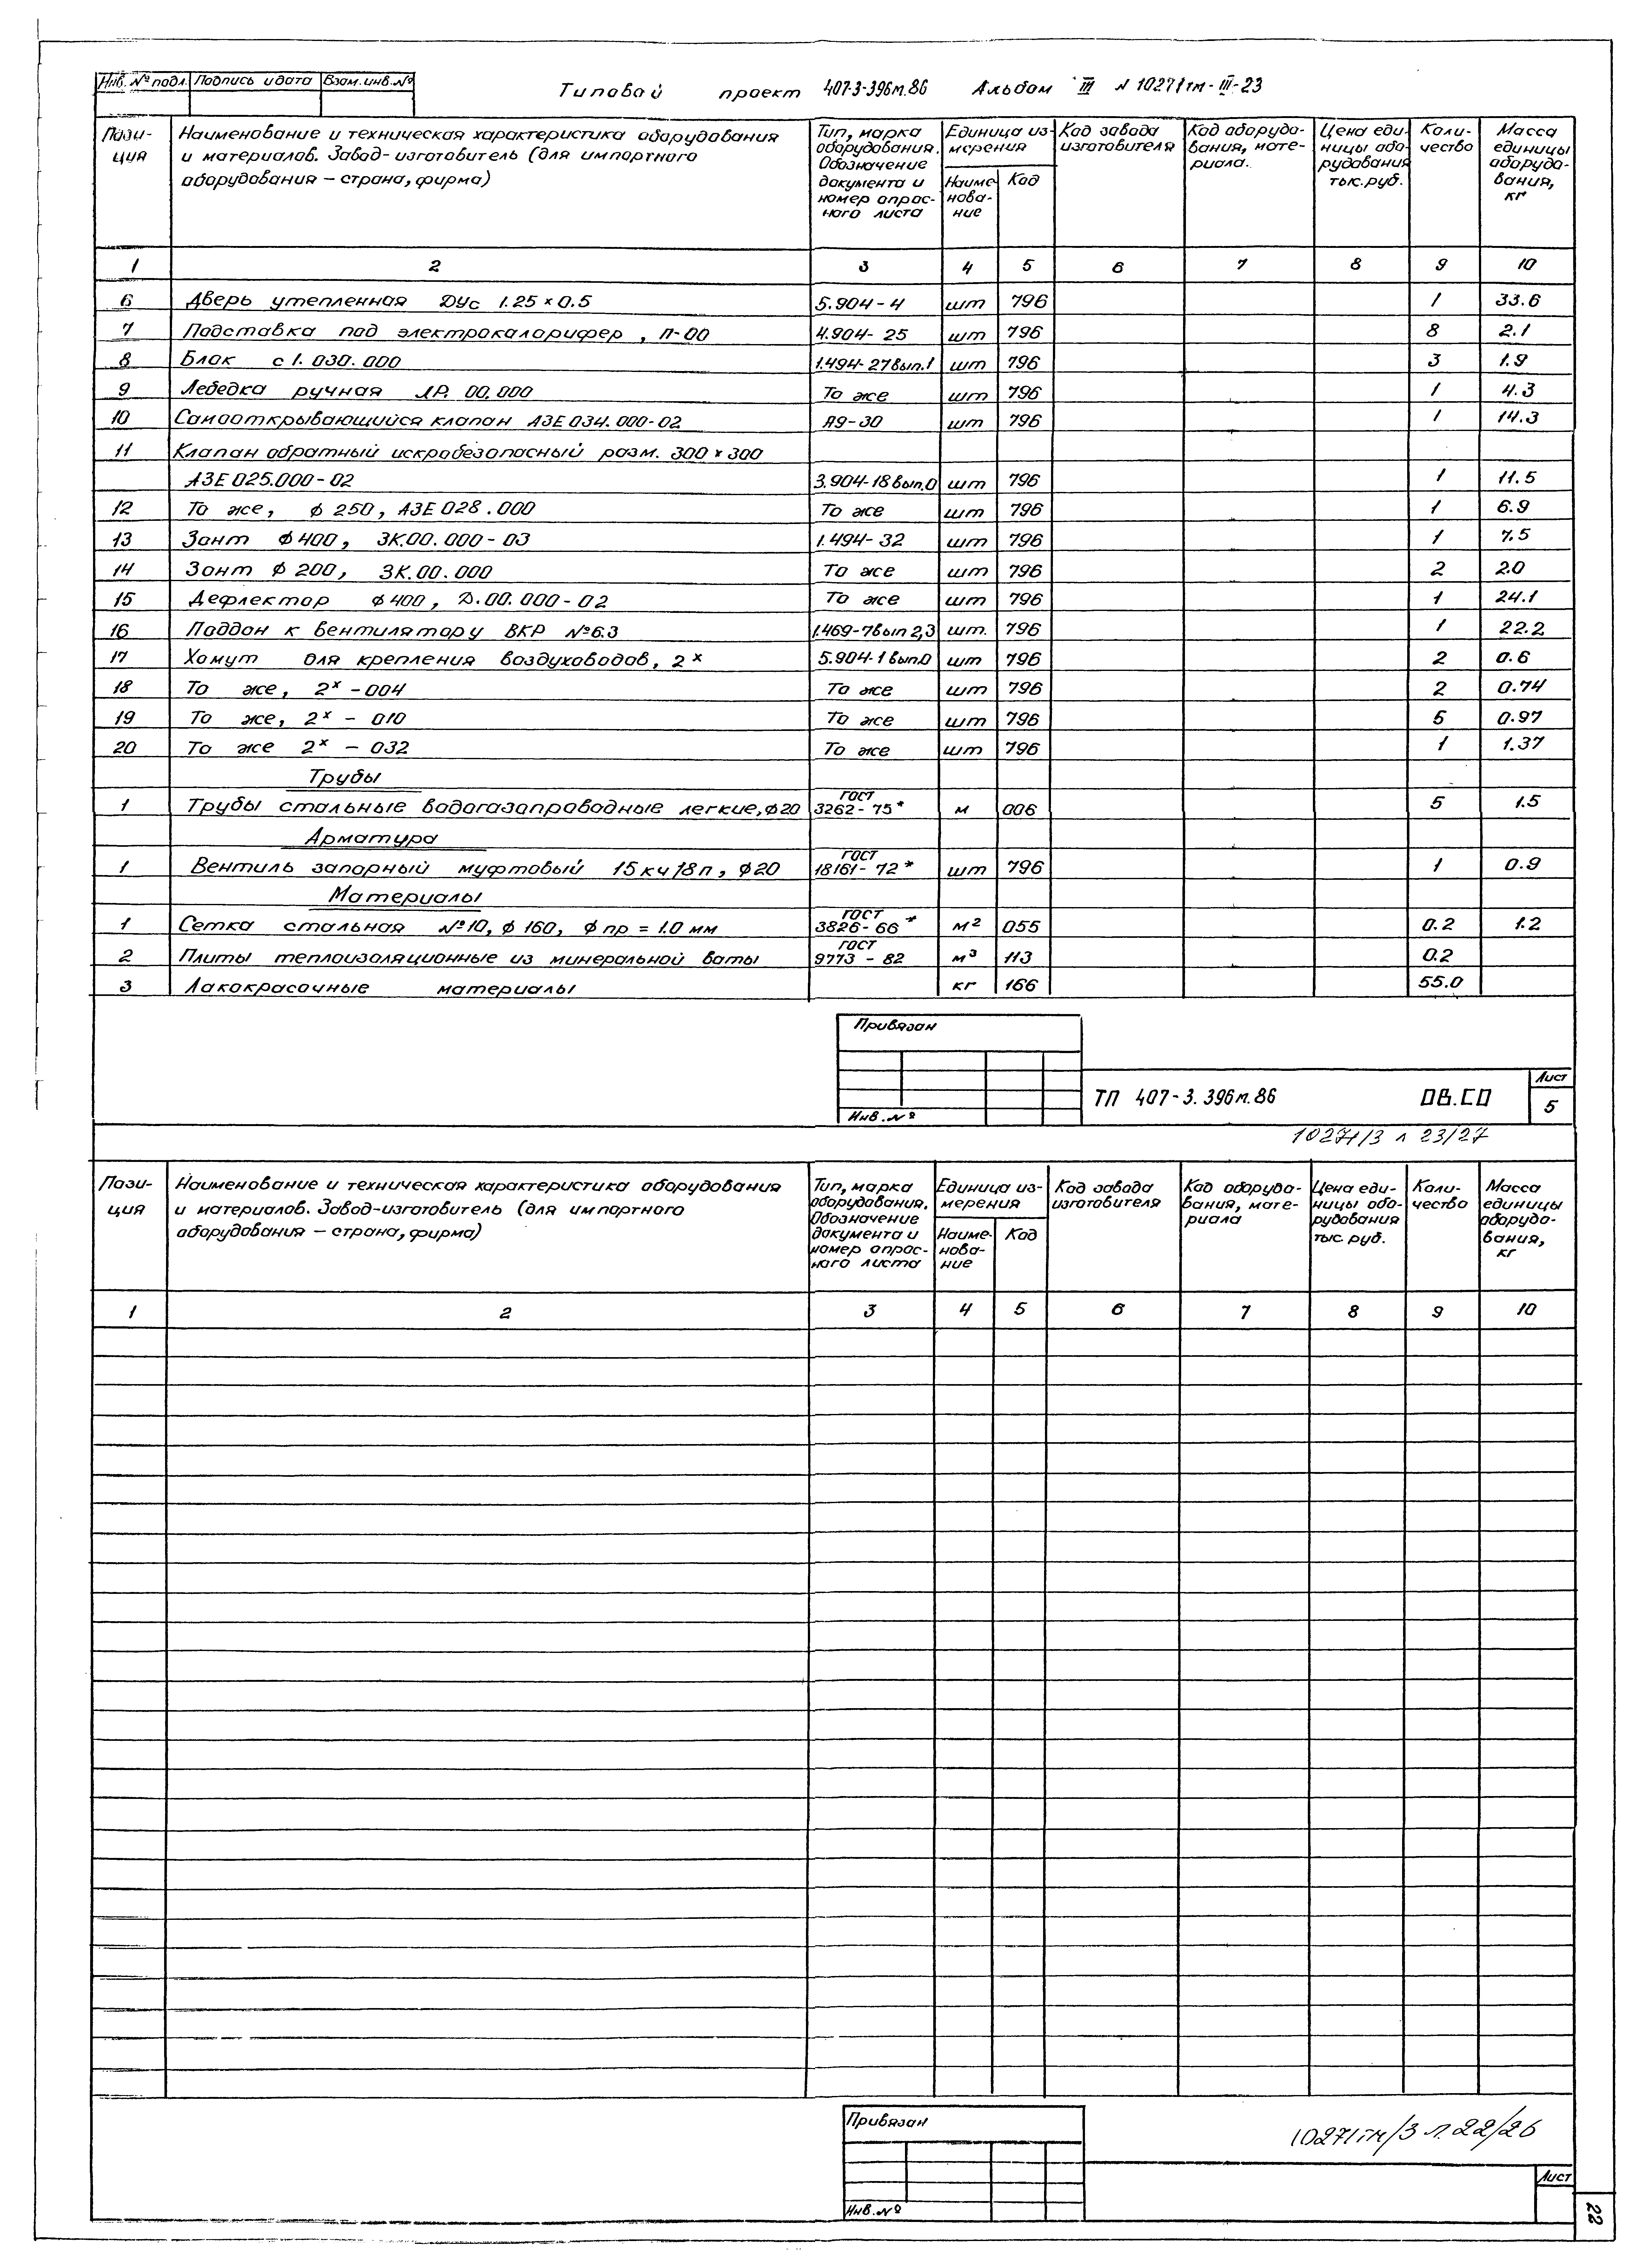 Инв. № подл. Подпись и дата Взам. инв. №
Типовой проект 407-3-396м.86 Альбом III N 10271тм-III-23
Пози-ция Наименование и техническая характеристика оборудования и материалов. Завод-изготовитель (для импортного оборудования – страна, фирма) Тип, марка оборудования. Обозначение документа и номер опрос-ного листа Единица из-мерения Наиме-нова-ние Код Код завода изготовителя Код оборудо-вания, мате-риала. Цена еди-ницы обо-рудования тыс. руб. Коли-чество Масса единицы оборудо-вания, кг
1 2 3 4 5 6 7 8 9 10
6 Дверь утепленная ДУс 1.25 × 0.5 5.904-4 шт 796 1 33.6
7 Подставка под электрокалорифер, П-00 4.904-25 шт 796 8 2.1
8 Блок с1.030.000 1.494-27 вып.1 шт 796 3 1.9
9 Лебедка ручная ЛР.00.000 То же шт 796 1 4.3
10 Самооткрывающийся клапан АЗЕ 034.000-02 А9-30 шт 796 1 14.3
11 Клапан обратный искробезопасный разм. 300 × 300
АЗЕ 025.000-02 3.904-18 вып.0 шт 796 1 11.5
12 То же, ф 250, АЗЕ 028.000 То же шт 796 1 6.9
13 Зонт ф 400, ЗК.00.000-03 1.494-32 шт 796 1 7.5
14 Зонт ф 200, ЗК.00.000 То же шт 796 2 2.0
15 Дефлектор ф 400, Д.00.000-02 То же шт 796 1 24.1
16 Поддон к вентилятору ВКР №6.3 1.469-7 вып 2,3 шт. 796 1 22.2
17 Хомут для крепления воздуховодов, 2ˣ 5.904-1 вып.0 шт 796 2 0.6
18 То же, 2ˣ -004 То же шт 796 2 0.74
19 То же, 2ˣ - 010 То же шт 796 5 0.97
20 То же 2ˣ - 032 То же шт 796 1 1.37
Трубы
1 Трубы стальные водогазопроводные легкие, ф20 ГОСТ 3262-75* м 006 5 1.5
Арматура
1 Вентиль запорный муфтовый 15кч18п, ф20 ГОСТ 18161-72* шт 796 1 0.9
Материалы
1 Сетка стальная №10, ф 160, ф пр = 1.0 мм ГОСТ 3826-66* м² 055 0.2 1.2
2 Плиты теплоизоляционные из минеральной ваты ГОСТ 9773-82 м³ 113 0.2
3 Лакокрасочные материалы кг 166 55.0
Привязан
Инв. №
ТП 407-3.396м.86 ОВ.СО Лист 5
10271/3 л 23/27
Пози-ция Наименование и техническая характеристика оборудования и материалов. Завод-изготовитель (для импортного оборудования – страна, фирма) Тип, марка оборудования. Обозначение документа и номер опрос-ного листа Единица из-мерения Наиме-нова-ние Код Код завода изготовителя Код оборудо-вания, мате-риала Цена еди-ницы обо-рудования тыс. руб. Коли-чество Масса единицы оборудо-вания, кг
1 2 3 4 5 6 7 8 9 10
Привязан
Инв. №
10271тм/3 л. 22/26
Лист
22